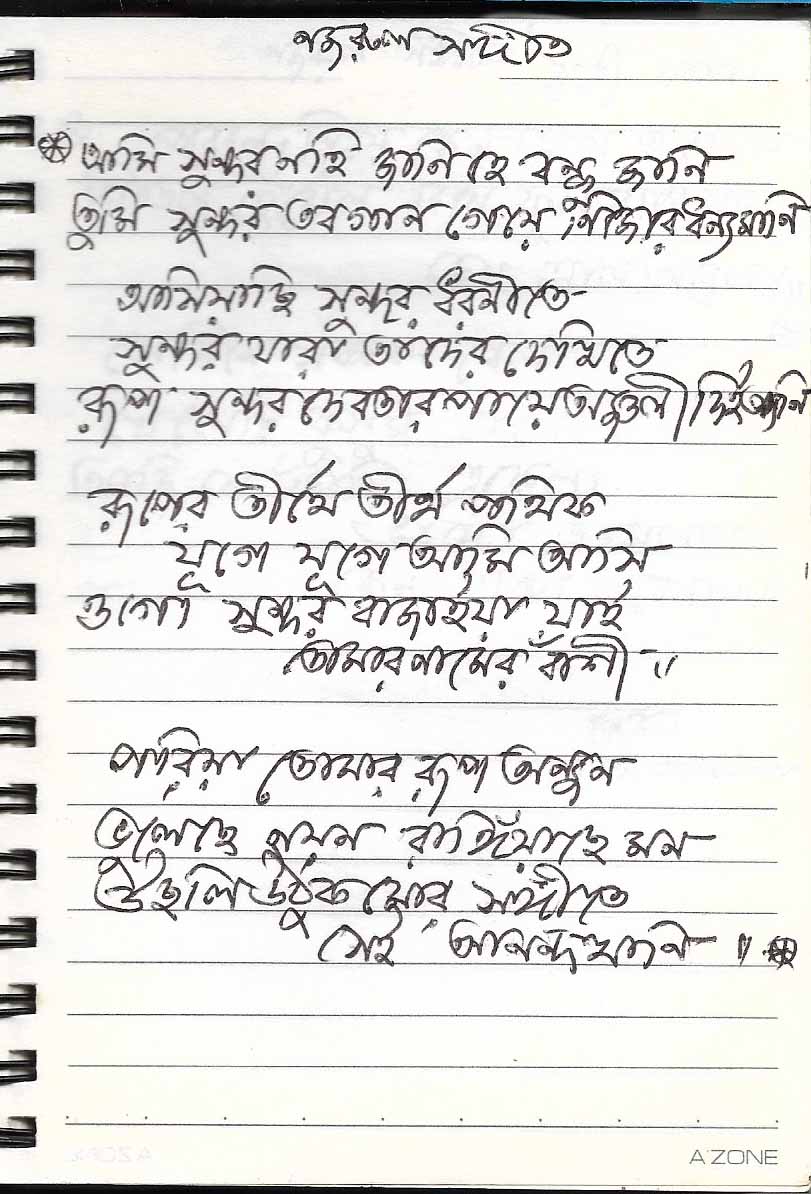 নজরুল সঙ্গীত
আমি সুন্দর নহি জানি হে বন্ধু জানি
তুমি সুন্দর তব গান গেয়ে নিজেরে ধন্য মানি
আসিয়াছি সুন্দর ধরনীতে
সুন্দর যারা তাদের দেখিতে
রূপ সুন্দর দেবতার পায়ে অঞ্জলী দিই আনি
রূপের তীর্থে তীর্থ পথিক
যুগে যুগে আমি আসি
ওগো সুন্দর বাজাইয়া যাই
তোমার নামের বাঁশী ॥
পরিয়া তোমার রূপ অঞ্জন
ভুলেছে নয়ন রাঙিয়াছে মন
উছলি উঠুক মোর সঙ্গীতে
সেই আনন্দখানি ॥
A'ZONE